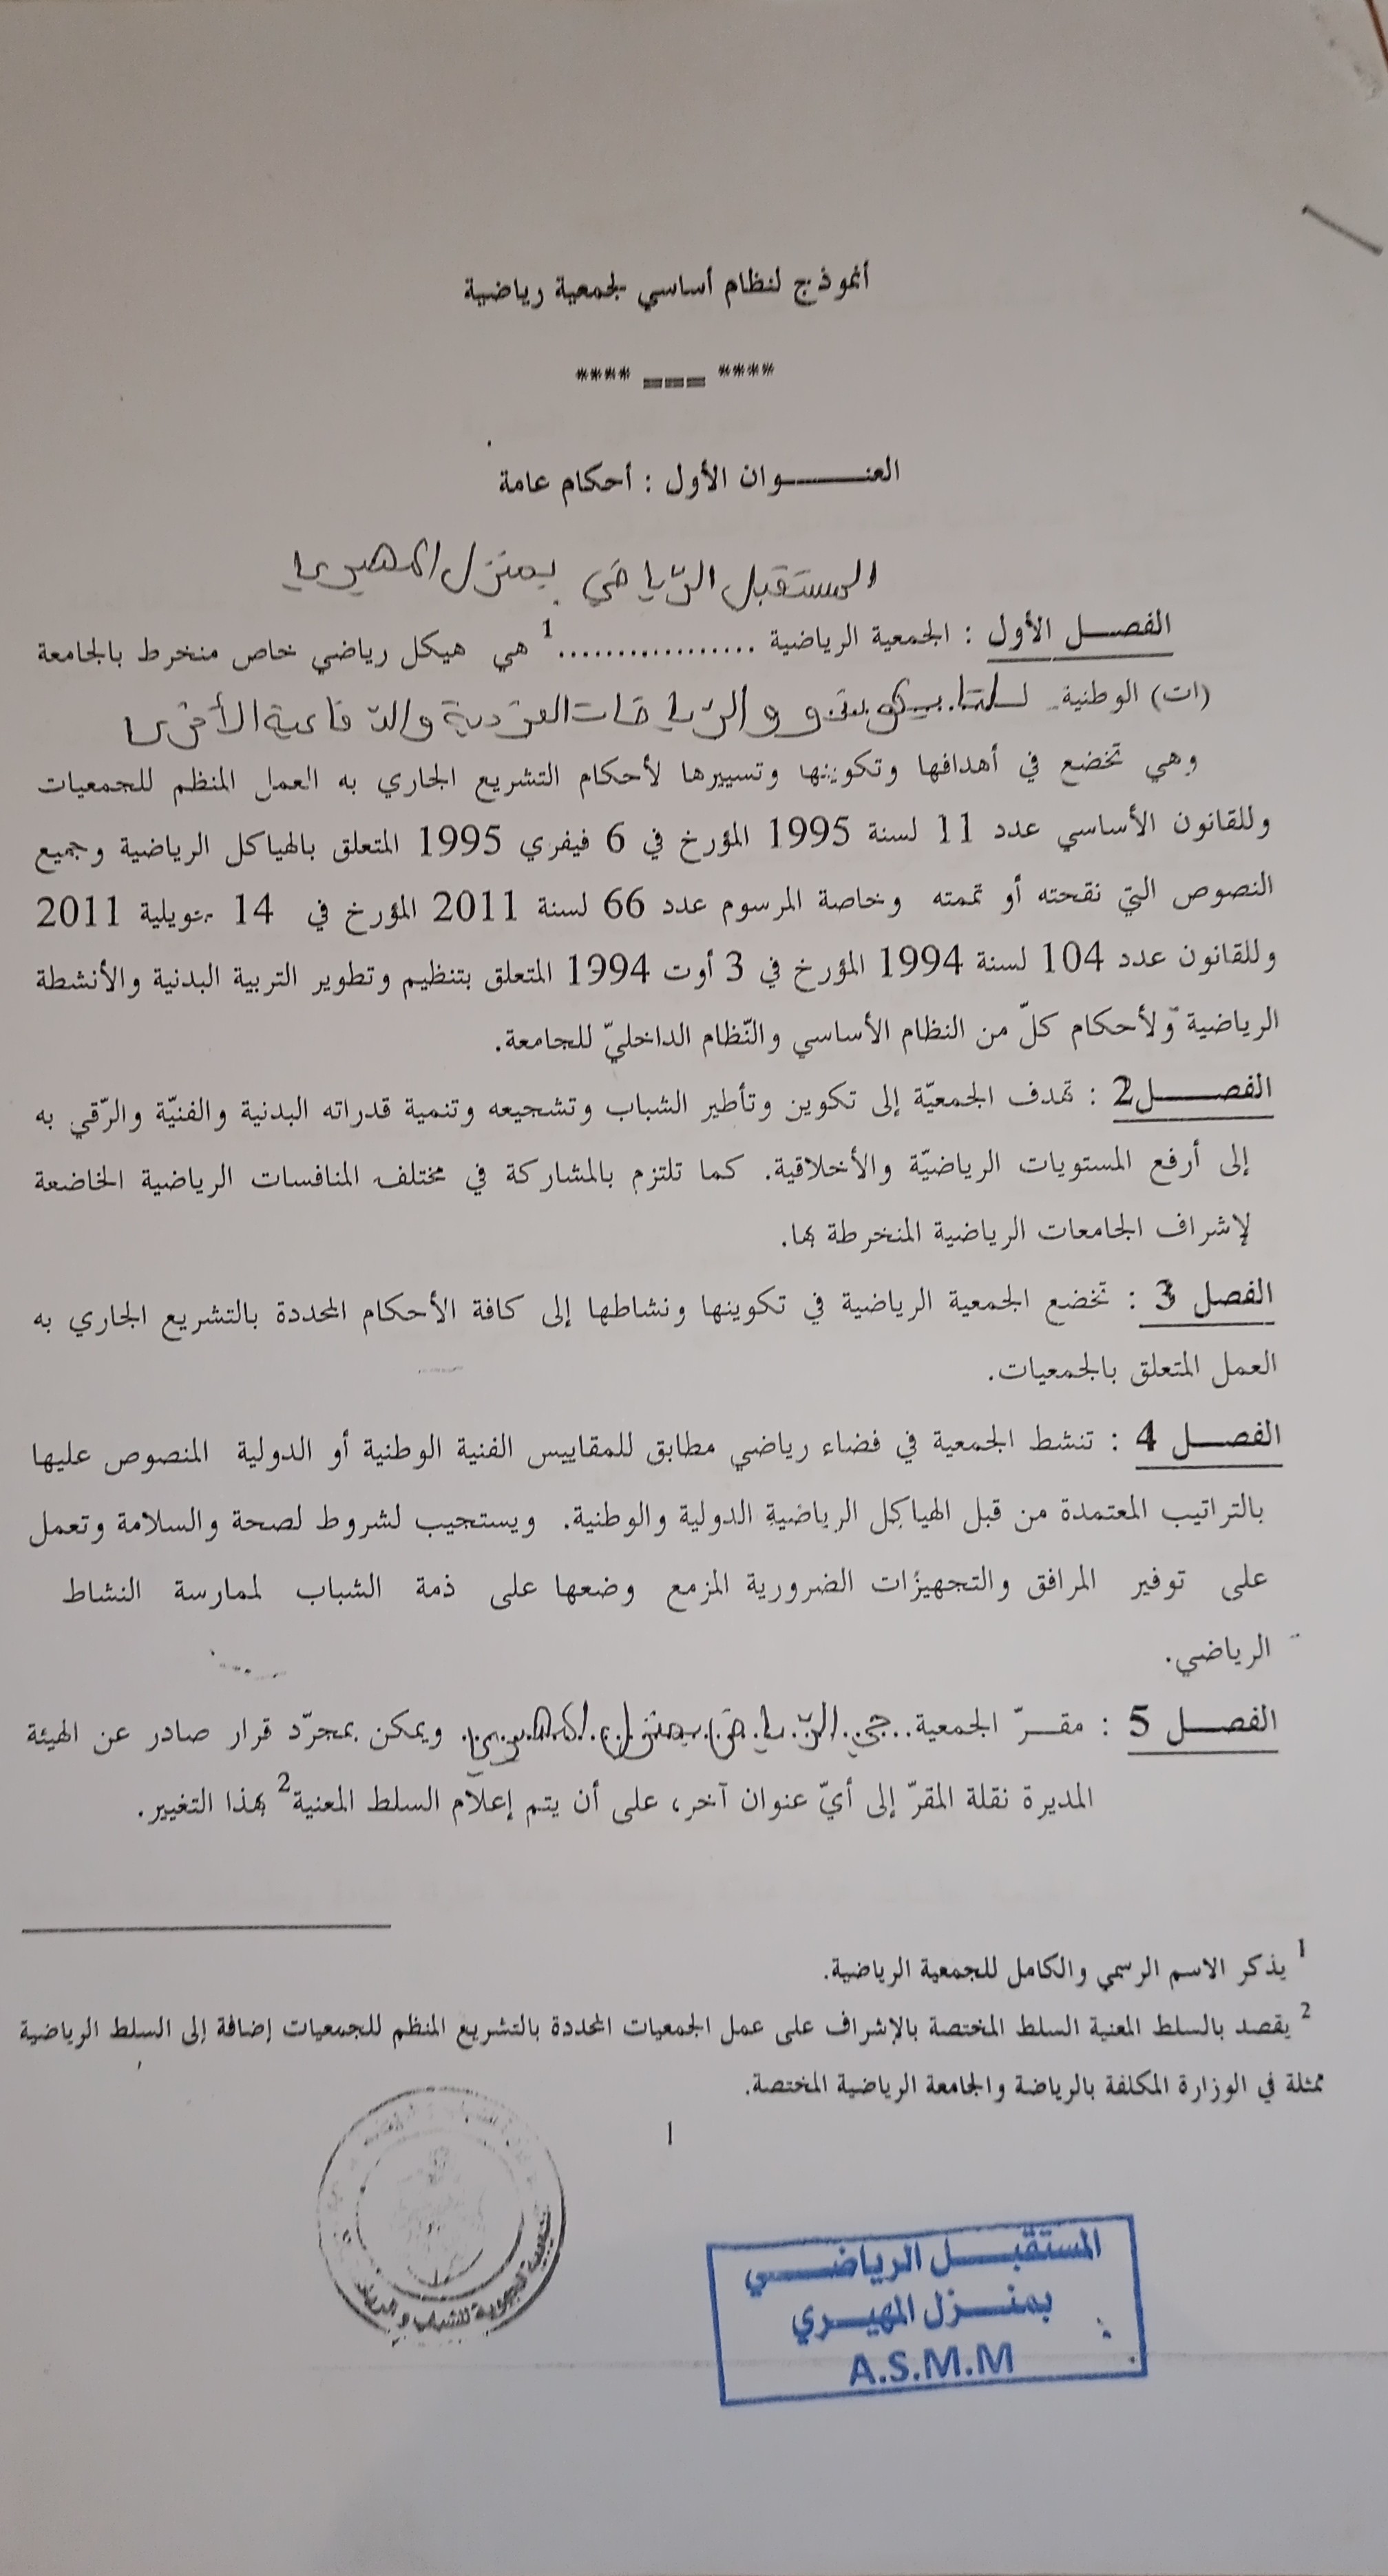 أنموذج لنظام أساسي لجمعية رياضية
**** === ****
العنـــــــوان الأول : أحكام عامة
المستقبل الرّياضي بمنزل المهيري
الفصـــل الأول : الجمعية الرياضية .................1 هي هيكل رياضي خاص منخرط بالجامعة
(ات) الوطنية للتايكوندو والرّياضات الفردية والدّفاعية الأخرى
وهي تخضع في أهدافها وتكوينها وتسييرها لأحكام التشريع الجاري به العمل المنظم للجمعيات
وللقانون الأساسي عدد 11 لسنة 1995 المؤرخ في 6 فيفري 1995 المتعلق بالهياكل الرياضية وجميع
النصوص التي نقحته أو تممته وخاصة المرسوم عدد 66 لسنة 2011 المؤرخ في 14 جويلية 2011
وللقانون عدد 104 لسنة 1994 المؤرخ في 3 أوت 1994 المتعلق بتنظيم وتطوير التربية البدنية والأنشطة
الرياضية ولأحكام كلّ من النظام الأساسي والنّظام الداخليّ للجامعة.
الفصــــــل2 : تهدف الجمعيّة إلى تكوين وتأطير الشباب وتشجيعه وتنمية قدراته البدنية والفنيّة والرّقي به
إلى أرفع المستويات الرياضيّة والأخلاقية. كما تلتزم بالمشاركة في مختلف المنافسات الرياضية الخاضعة
لإشراف الجامعات الرياضية المنخرطة بها.
الفصل 3 : تخضع الجمعية الرياضية في تكوينها ونشاطها إلى كافة الأحكام المحددة بالتشريع الجاري به
العمل المتعلق بالجمعيات.
الفصـــل 4 : تنشط الجمعية في فضاء رياضي مطابق للمقاييس الفنية الوطنية أو الدولية المنصوص عليها
بالتراتيب المعتمدة من قبل الهياكل الرياضية الدولية والوطنية. ويستجيب لشروط لصحة والسلامة وتعمل
على توفير المرافق والتجهيزات الضرورية المزمع وضعها على ذمة الشباب لممارسة النشاط
الرياضي.
الفصـــل 5 : مقـــرّ الجمعية..حي الرّياض بمنزل المهيري. ويمكن بمجرّد قرار صادر عن الهيئة
المديرة نقلة المقرّ إلى أيّ عنوان آخر، على أن يتم إعلام السلط المعنية2 بهذا التغيير.
1 يذكر الاسم الرسمي والكامل للجمعية الرياضية.
2 يقصد بالسلط المعنية السلط المختصة بالإشراف على عمل الجمعيات المحددة بالتشريع المنظم للجمعيات إضافة إلى السلط الرياضية
ممثلة في الوزارة المكلفة بالرياضة والجامعة الرياضية المختصة.
1
الجهوية للشباب و
المستقبـــل الرياضـــي
بمنـــزل المهيـــري
A.S.M.M